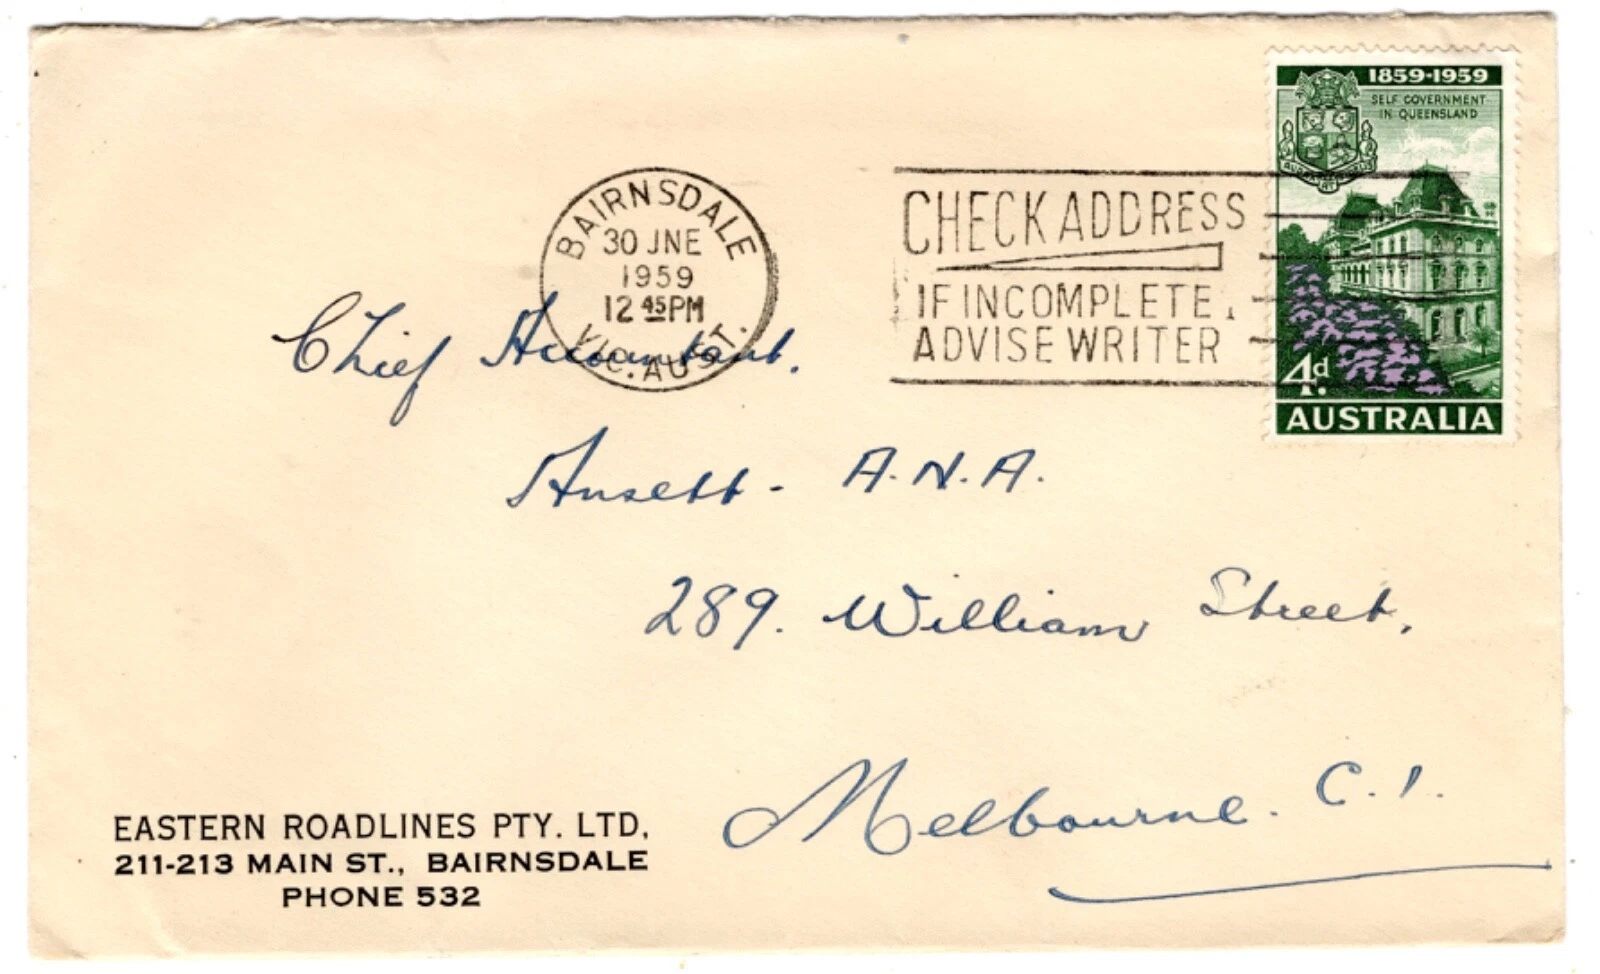 1859-1959
SELF GOVERNMENT
IN QUEENSLAND
4d.
AUSTRALIA
BAIRNSDALE
30 JNE
1959
12 45 PM
VIC. AUST.
CHECK ADDRESS
IF INCOMPLETE,
ADVISE WRITER
Chief Accountant.
Ansett - A.N.A.
289. William Street,
Melbourne. C.1.
EASTERN ROADLINES PTY. LTD.
211-213 MAIN ST., BAIRNSDALE
PHONE 532